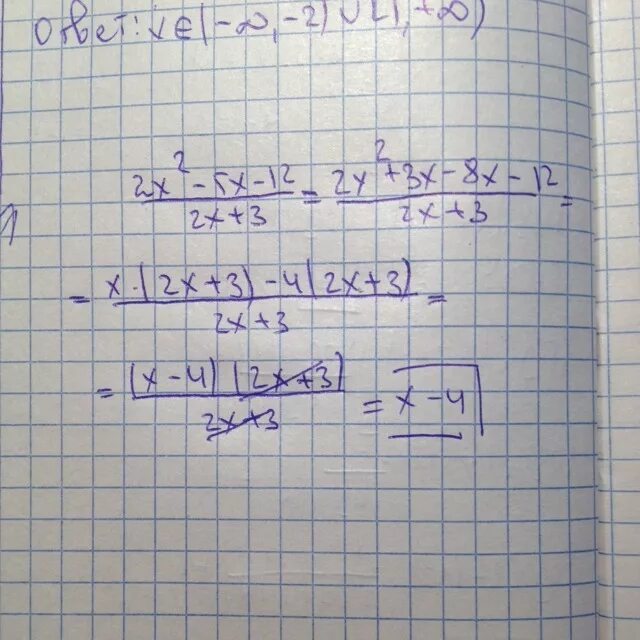 Ответ: x∈(-∞, -2) ∪ (1, +∞)
(2x² - 5x - 12)/(2x + 3) = (2x² + 3x - 8x - 12)/(2x + 3) =
= (x · (2x + 3) - 4(2x + 3))/(2x + 3) =
= ((x - 4)(2x + 3))/(2x + 3) = x - 4